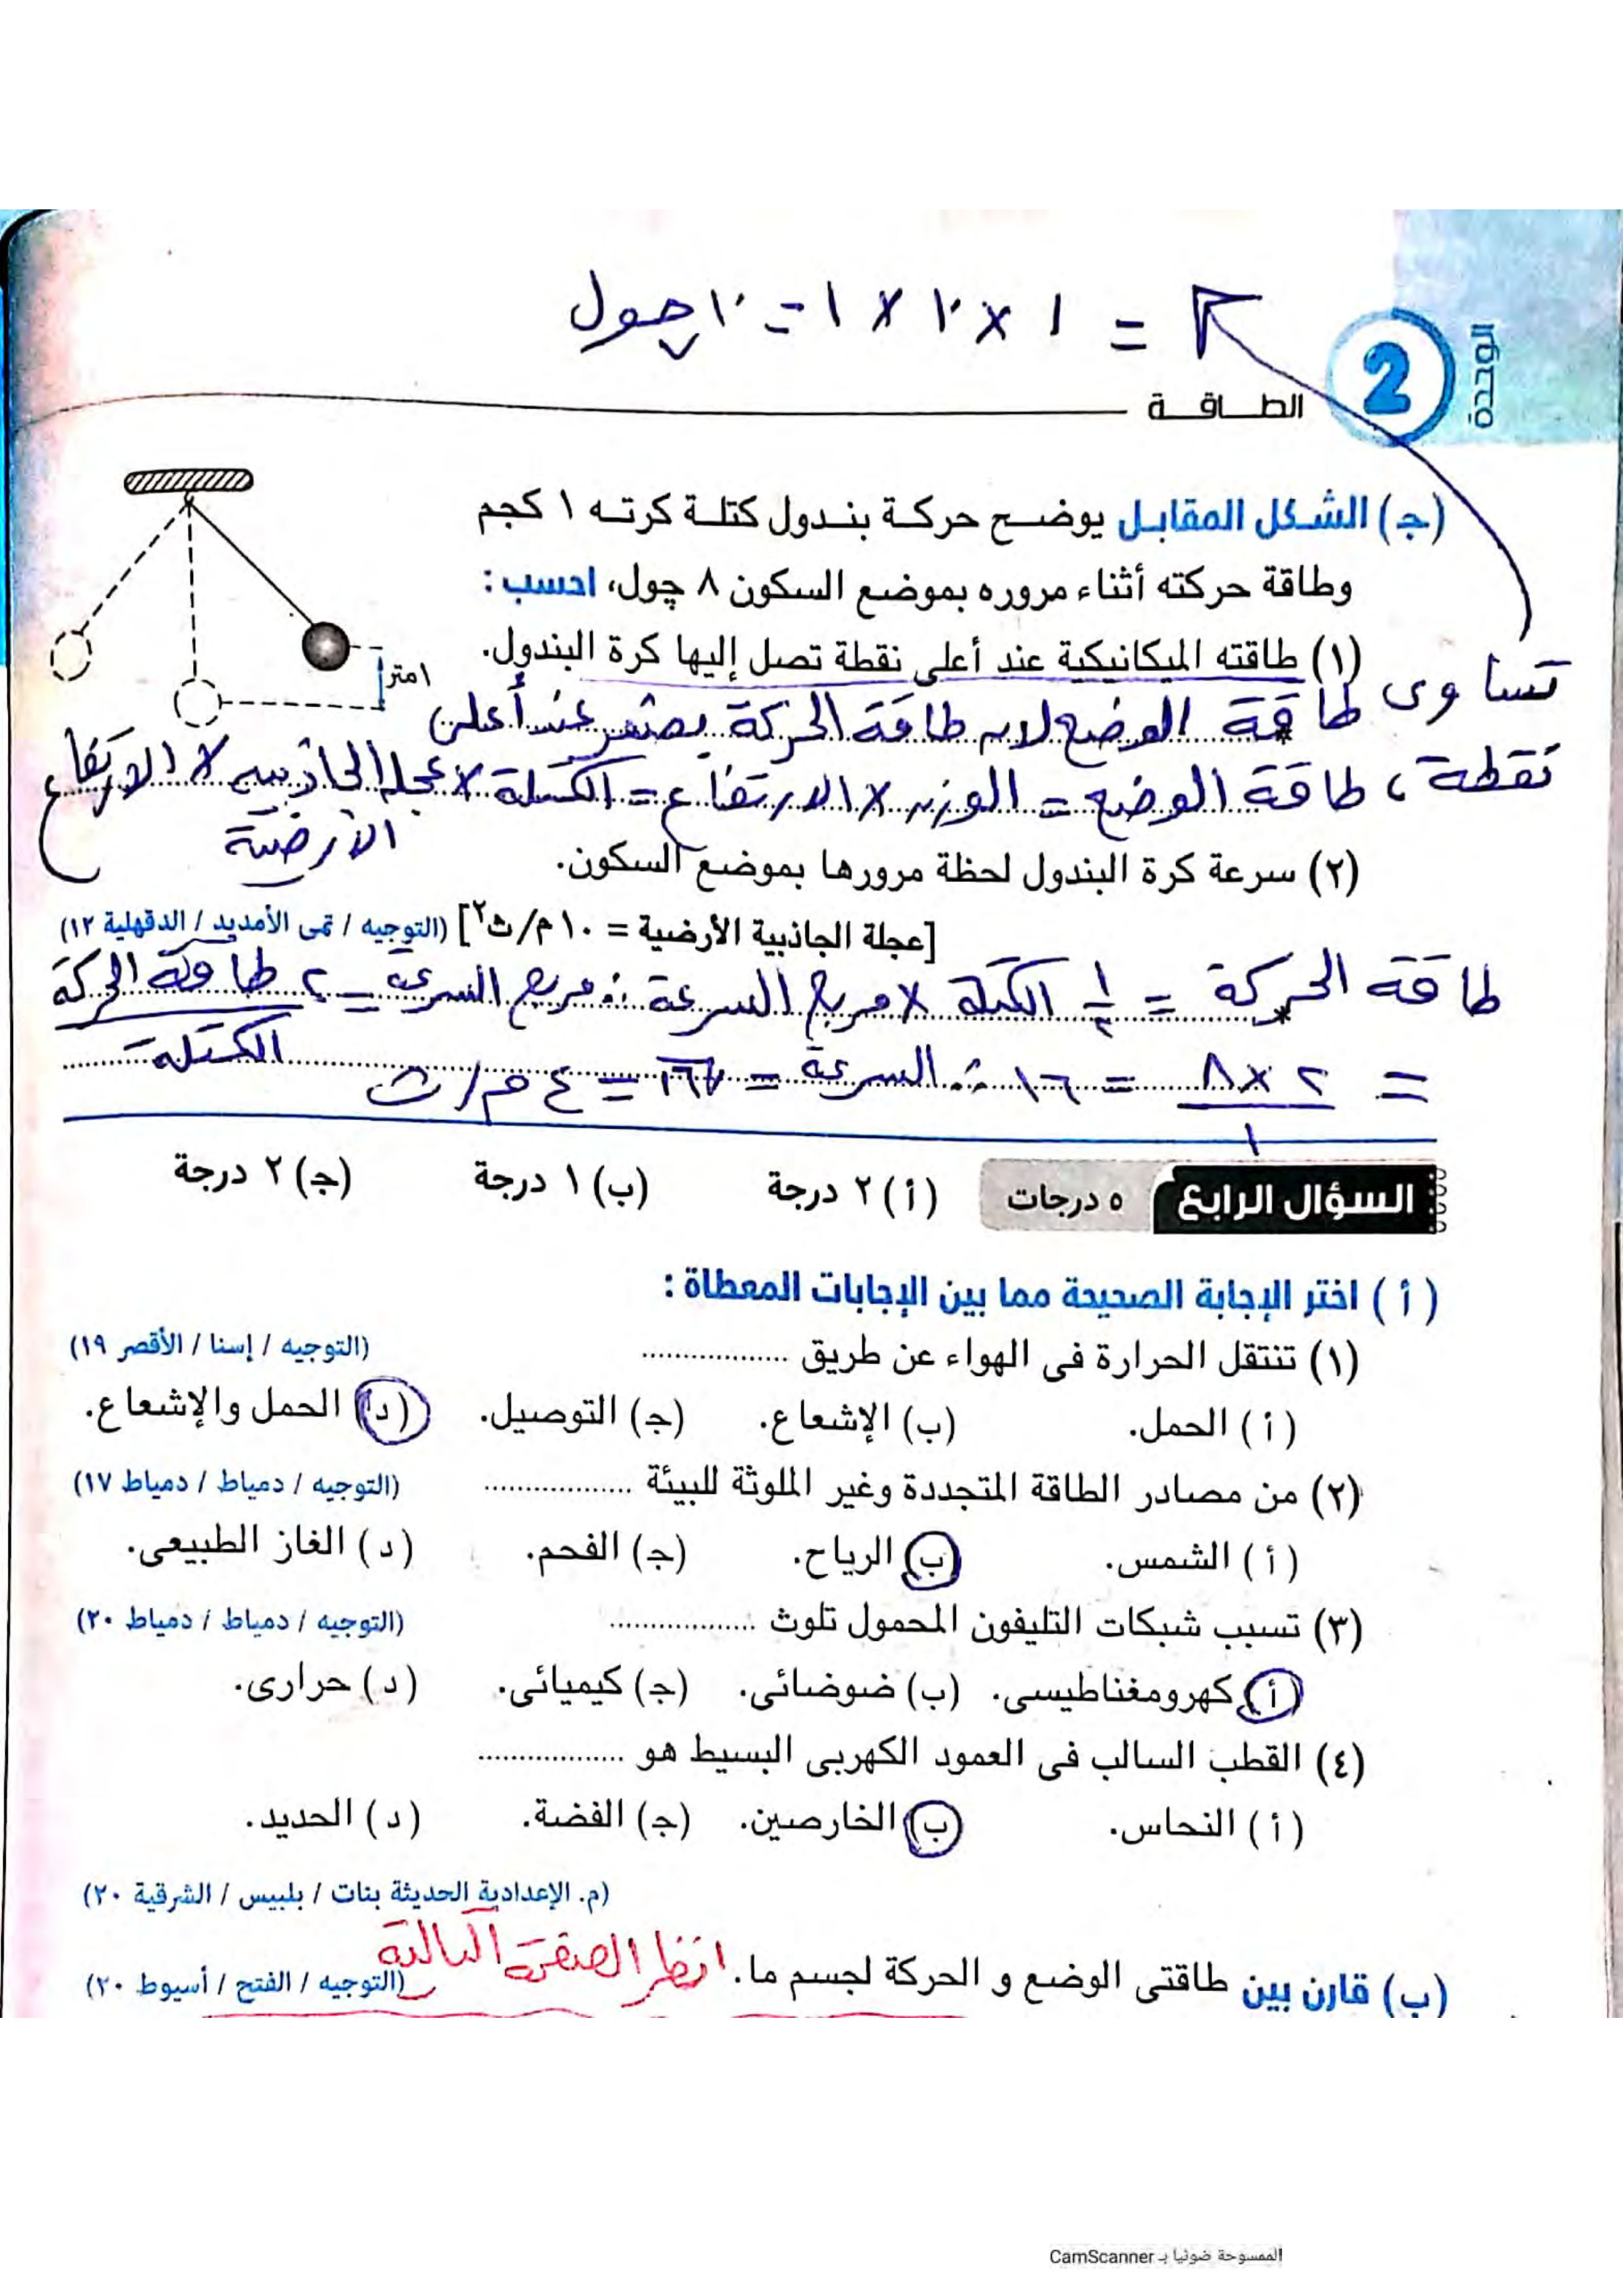 = ١ × ١٠ × ١ = ١٠ چول
الوحدة
2
الطـــاقـــة
(جـ) الشكل المقابل يوضح حركة بندول كتلة كرته ١ كجم
وطاقة حركته أثناء مروره بموضع السكون ٨ چول، احسب :
(١) طاقته الميكانيكية عند أعلى نقطة تصل إليها كرة البندول.
١متر
تساوى طاقة الوضع لأن طاقة الحركة بصفر عند أعلى
نقطة، طاقة الوضع = الوزن × الارتفاع = الكتلة × عجلة الجاذبية × الارتفاع
الأرضية
(٢) سرعة كرة البندول لحظة مرورها بموضع السكون.
[عجلة الجاذبية الأرضية = ١٠ م/ث٢] (التوجيه / تمى الأمديد / الدقهلية ١٢)
طاقة الحركة = ١/٢ الكتلة × مربع السرعة ∴ مربع السرعة = ٢ طاقة الحركة
الكتلة
= ٢ × ٨ / ١ = ١٦ ∴ السرعة = √١٦ = ٤ م/ث
السؤال الرابع ٥ درجات (أ) ٢ درجة (ب) ١ درجة (جـ) ٢ درجة
(أ) اختر الإجابة الصحيحة مما بين الإجابات المعطاة :
(١) تنتقل الحرارة فى الهواء عن طريق .................. (التوجيه / إسنا / الأقصر ١٩)
(أ) الحمل. (ب) الإشعاع. (جـ) التوصيل. (د) الحمل والإشعاع.
(٢) من مصادر الطاقة المتجددة وغير الملوثة للبيئة .................. (التوجيه / دمياط / دمياط ١٧)
(أ) الشمس. (ب) الرياح. (جـ) الفحم. (د) الغاز الطبيعى.
(٣) تسبب شبكات التليفون المحمول تلوث .................. (التوجيه / دمياط / دمياط ٢٠)
(أ) كهرومغناطيسى. (ب) ضوضائى. (جـ) كيميائى. (د) حرارى.
(٤) القطب السالب فى العمود الكهربى البسيط هو ..................
(أ) النحاس. (ب) الخارصين. (جـ) الفضة. (د) الحديد.
(م. الإعدادية الحديثة بنات / بلبيس / الشرقية ٢٠)
(ب) قارن بين طاقتى الوضع و الحركة لجسم ما. انظر الصفحة التالية (التوجيه / الفتح / أسيوط ٢٠)
الممسوحة ضوئيا بـ CamScanner